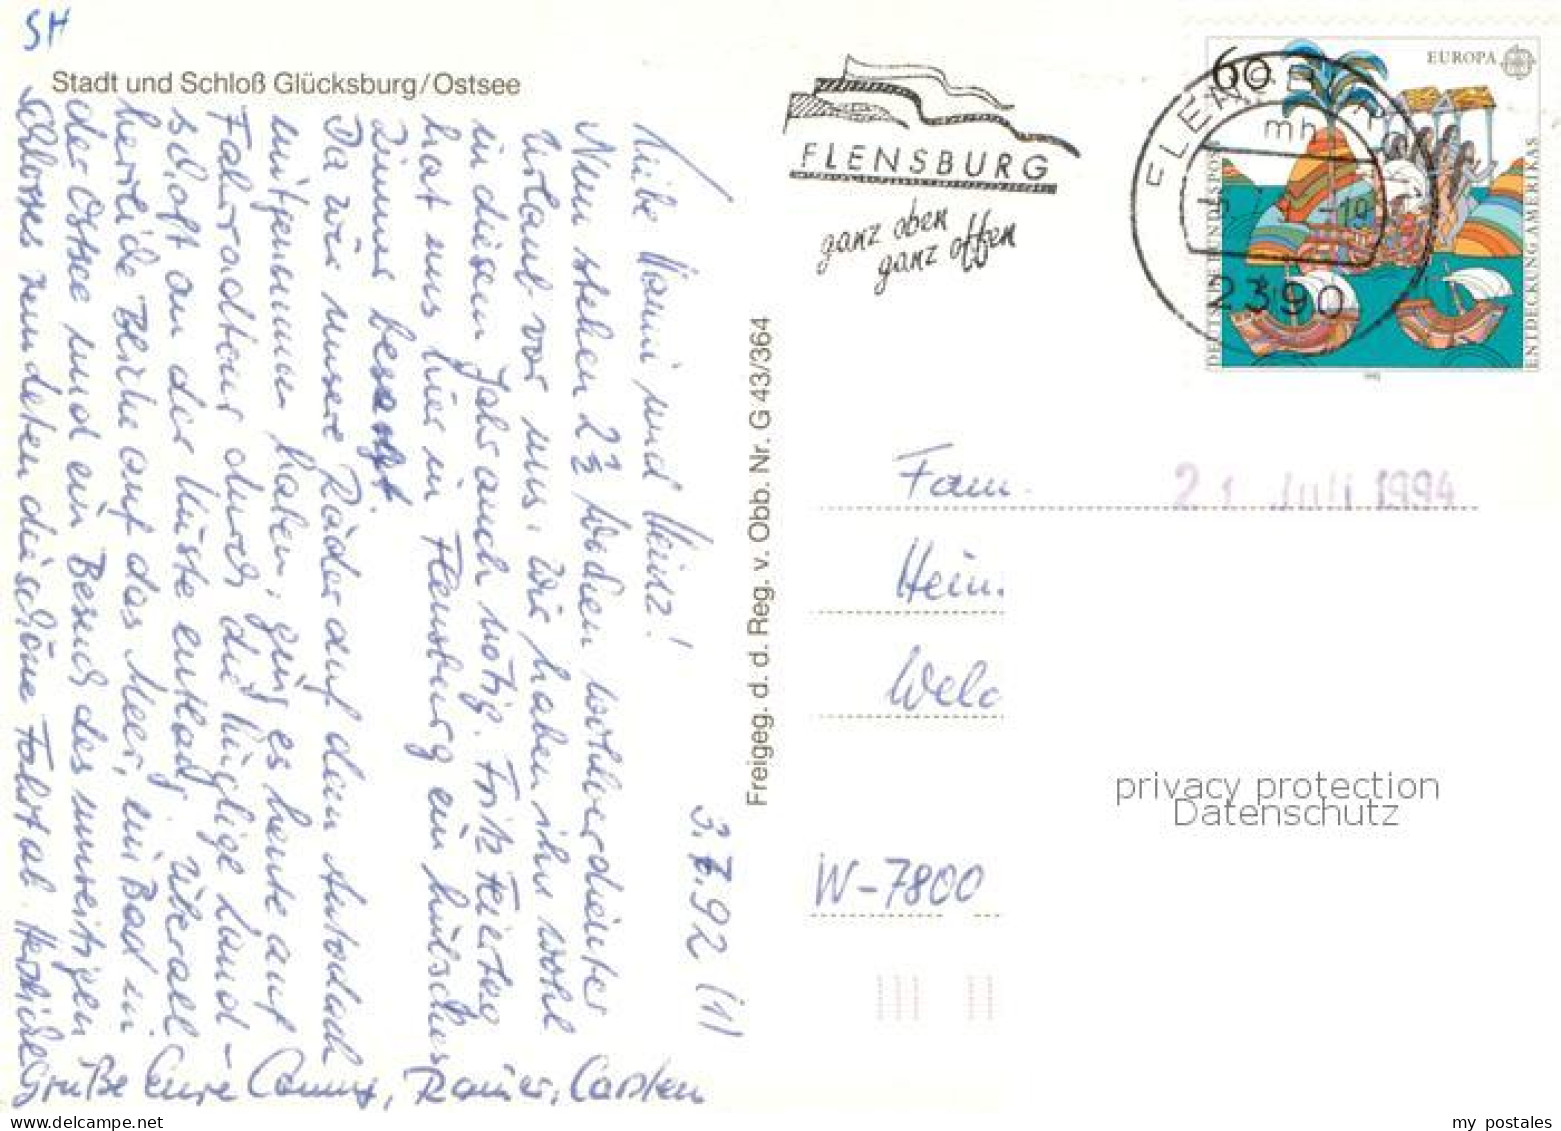 SH
Stadt und Schloß Glücksburg/Ostsee
3.7.92 (1)
Liebe Hanni und Heinz!
Nun stehen 2½ Wochen wohlverdienter
Urlaub vor uns. Wir haben ihn wohl
in diesem Jahr auch nötig. Fritz Feiertag
hat uns hier in Flensburg ein hübsches
Zimmer besorgt.
Da wir unsere Räder auf dem Autodach
mitgenommen haben, ging es heute auf
Fahrradtour durch die hüglige Land-
schaft an der Küste entlang. Überall
herrliche Blicke auf das Meer, ein Bad in
der Ostsee und ein Besuch des
Schlosses rundeten die schöne Fahrt ab. Herzliche
Grüße Eure Conny, Rainer, Carsten
Freigeg. d. d. Reg. v. Obb. Nr. G 43/364
FLENSBURG
ganz oben
ganz offen
FLENSBURG
mh
2390
60
EUROPA
DEUTSCHE BUNDESPOST
ENTDECKUNG AMERIKAS
1992
Fam.
21. Juli 1994
Hein.
Welc
privacy protection
Datenschutz
W-7800
my postales